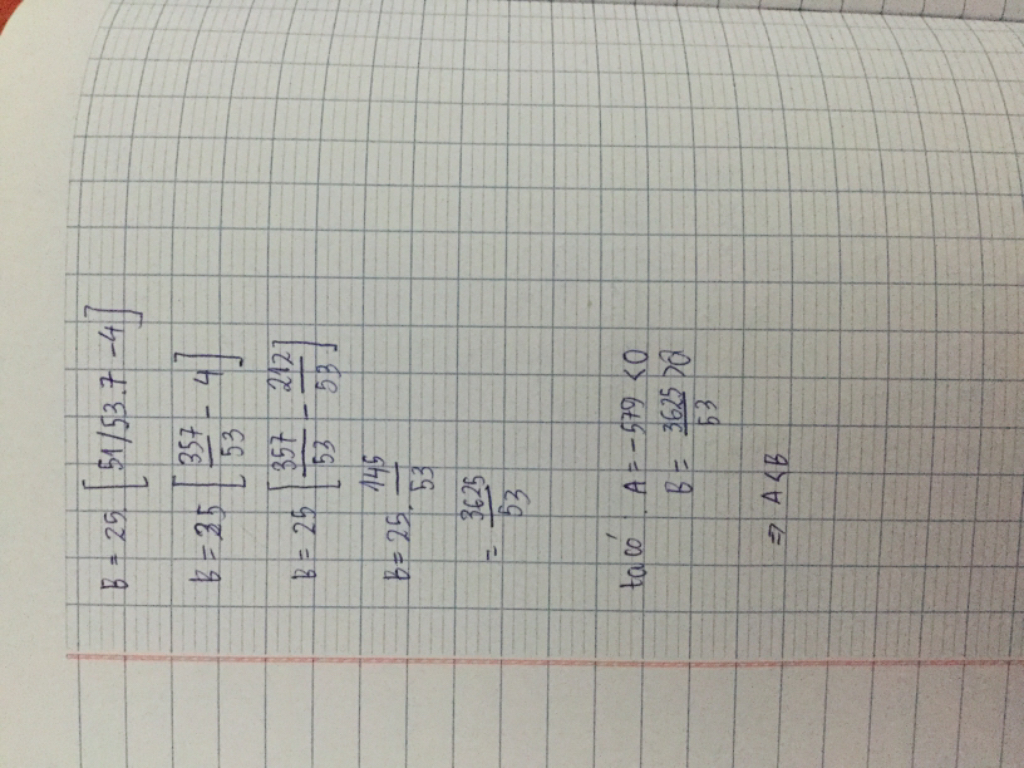 B = 25. [51/53.7 - 4]
B = 25 [357/53 - 4]
B = 25 [357/53 - 212/53]
B = 25. 145/53
= 3625/53
ta có: A = -579 < 0
B = 3625/53 > 0
⇒ A < B